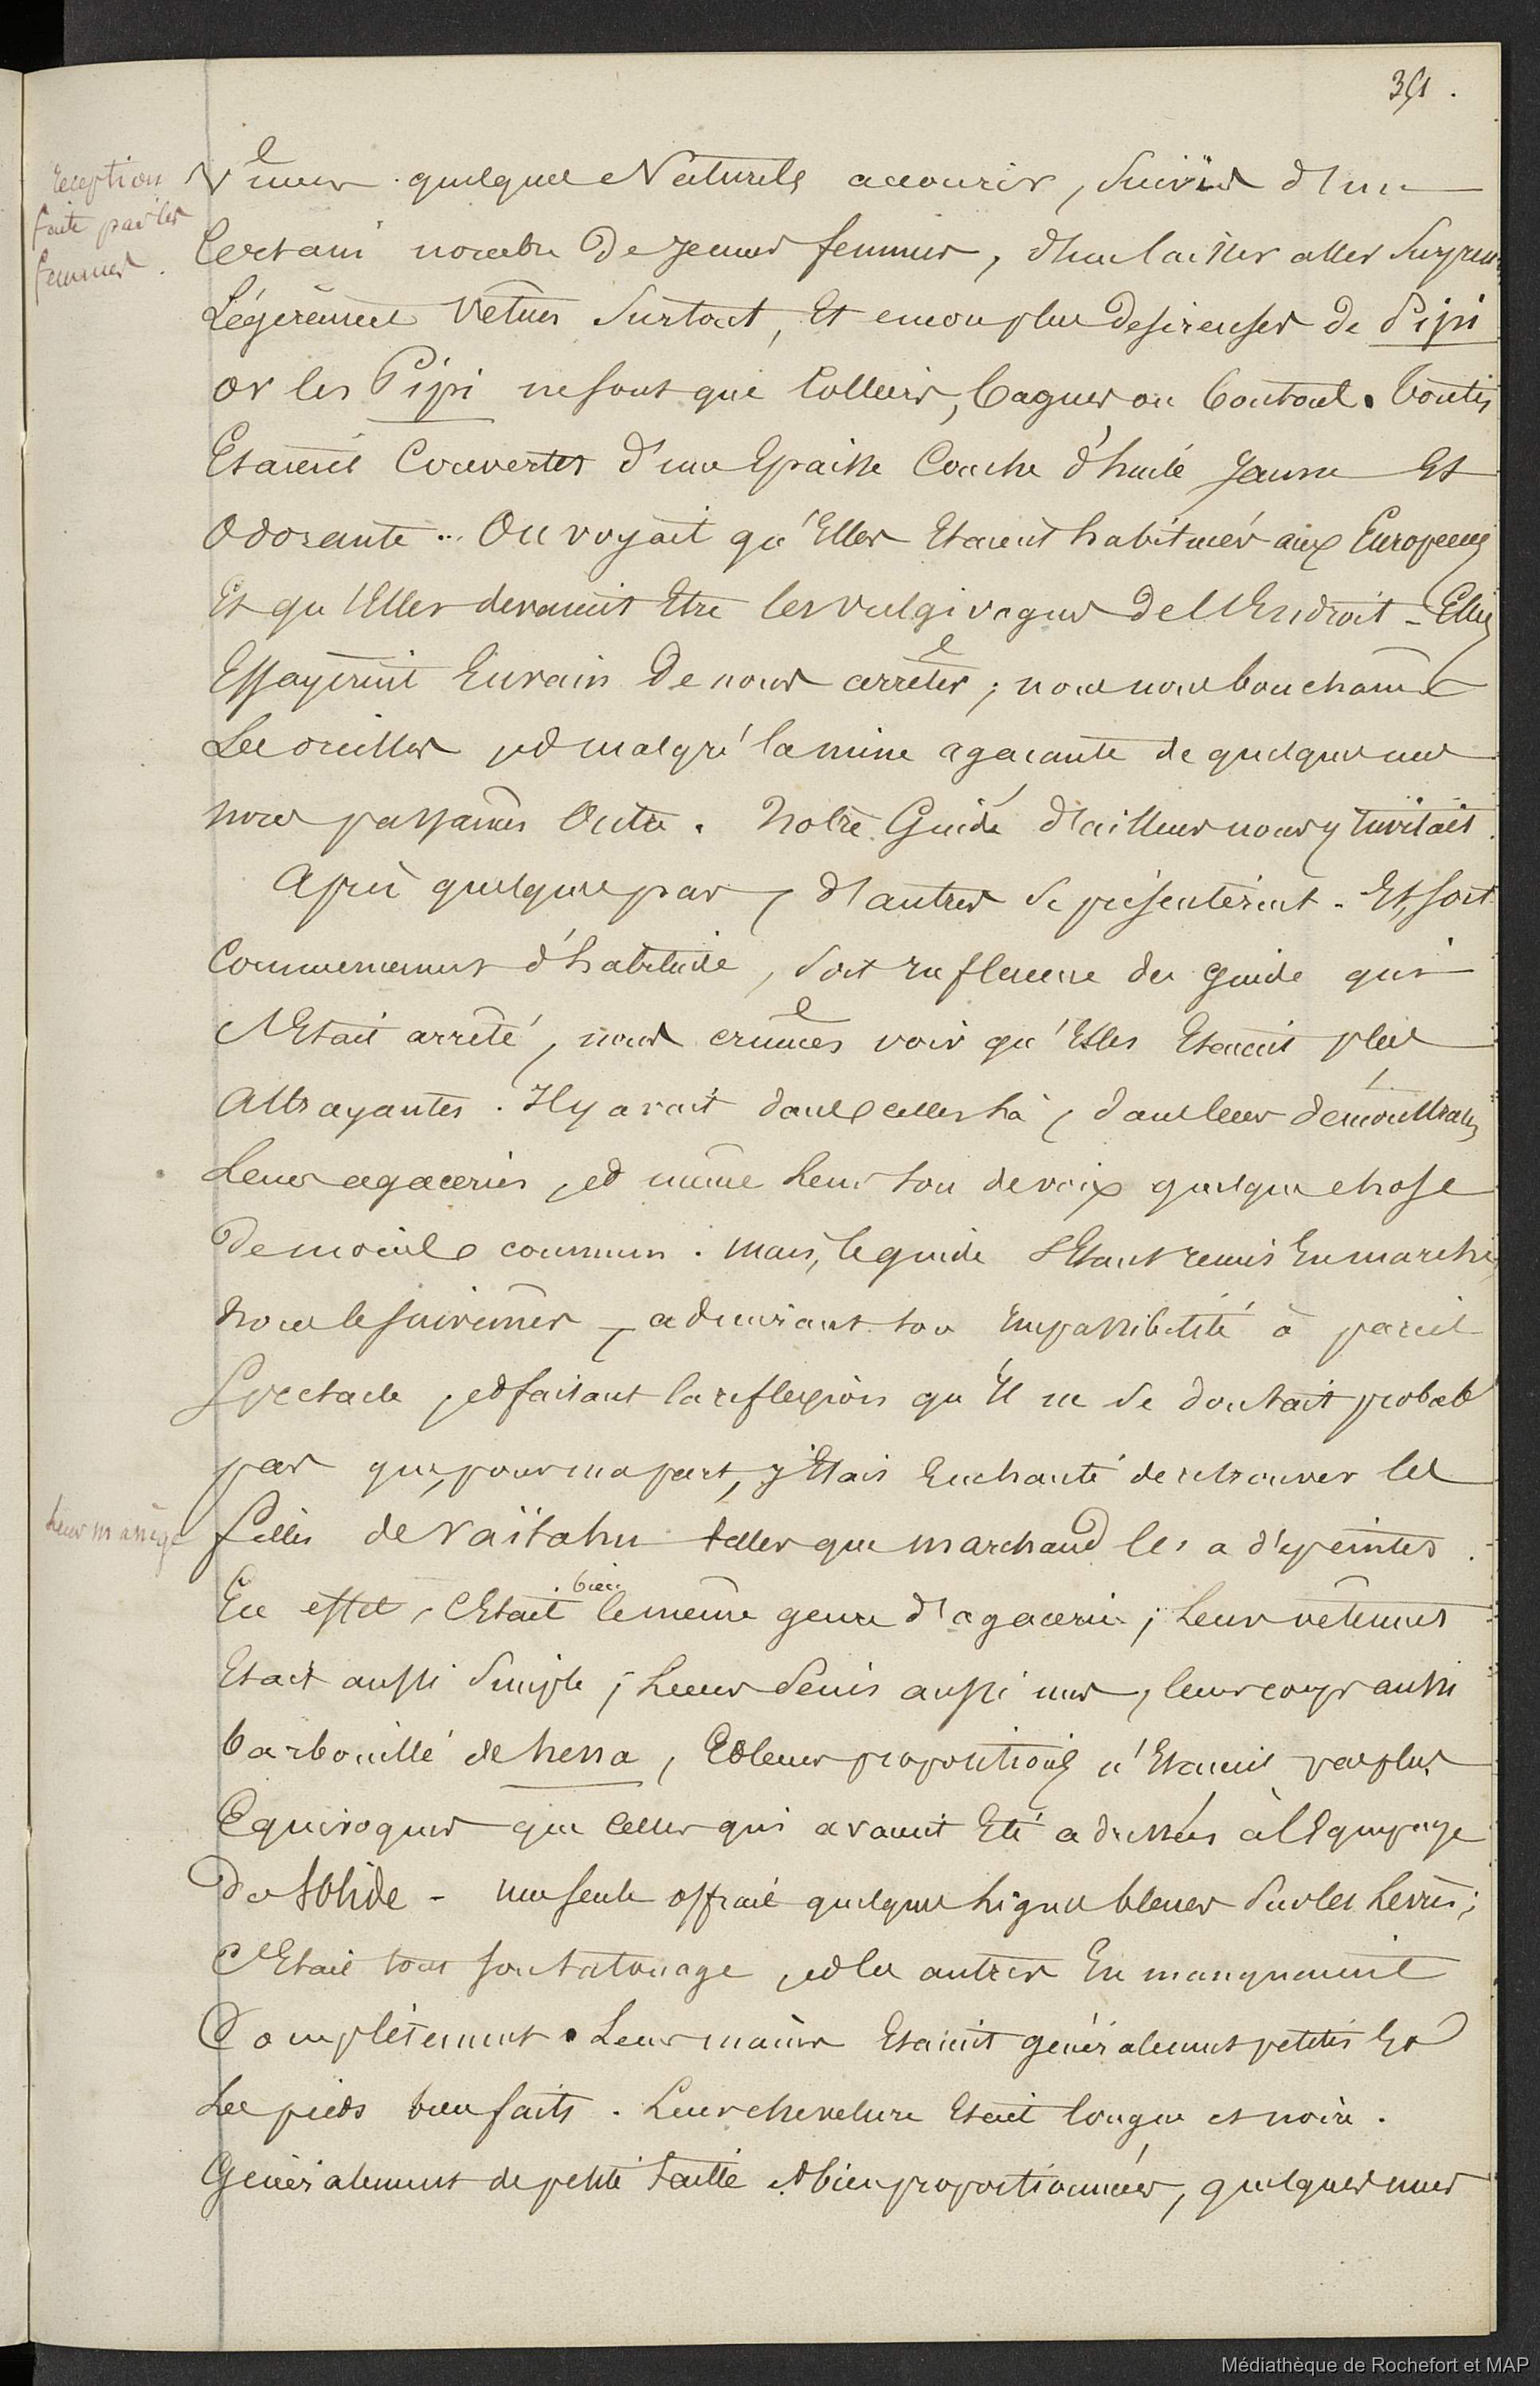 351.
reception
faite par les
femmes.
Vîmes quelques Naturels accourir, suivis d'un
Certain nombre de jeunes femmes, d'un laisser aller
Légèrement vêtues surtout, Et encore plus desireuses de Pipi
or les Pipi ne sont que Colliers, bagues ou boutons. toutes
Etaient Couvertes d'une Epaisse Couche d'huile jaune Et
Odorante.. On voyait qu'Elles Etaient habituées aux Europeens
Et qu'Elles devaient Etre les vulgivagues de l'Endroit - Elles
Essayèrent Envain de nous arrêter ; nous nous bouchames
Les oreilles, et malgré la mine agacante de quelques unes
nous passames Outre. Notre Guide d'ailleurs nous y Invitait.
Après quelques pas, d'autres se présentèrent. Et, soit
Commencement d'habitude, soit Influence du guide qui
s'Etait arrêté, nous crumes voir qu'Elles Etaient plus
Attrayantes. Il y avait dans celles là, dans leurs démonstrations
Leurs agaceries, et même Leur ton de voix quelque chose
De moins commun. Mais, le guide s'Etant remis En marche,
Nous le suivimes, admirant son Impassibilité à pareil
Spectacle, et faisant la reflexion qu'Il ne se doutait probabt
pas que, pour ma part, j'Etais Enchanté de retrouver les
Leur manège
filles de Vaïtahu telles que Marchand les a dépeintes.
En effet, c'Etait bien le même genre d'agacerie ; Leur vêtement
Etait aussi Simple ; Leurs Seins aussi nus, leur corps aussi
barbouillé de hena, Et leurs propositions n'Etaient pas plus
Equivoques que Celles qui avaient Eté adressées à l'Equipage
Du Solide - une seule offrait quelques Lignes bleues sur les Levres ;
c'Etait tout son tatouage, et les autres En manquaient
Complètement. Leurs mains Etaient généralement petites Et
Les pieds bien faits. Leur chevelure Etait longue et noire.
Généralement de petite taille et bien proportionnées, quelques unes
Médiathèque de Rochefort et MAP